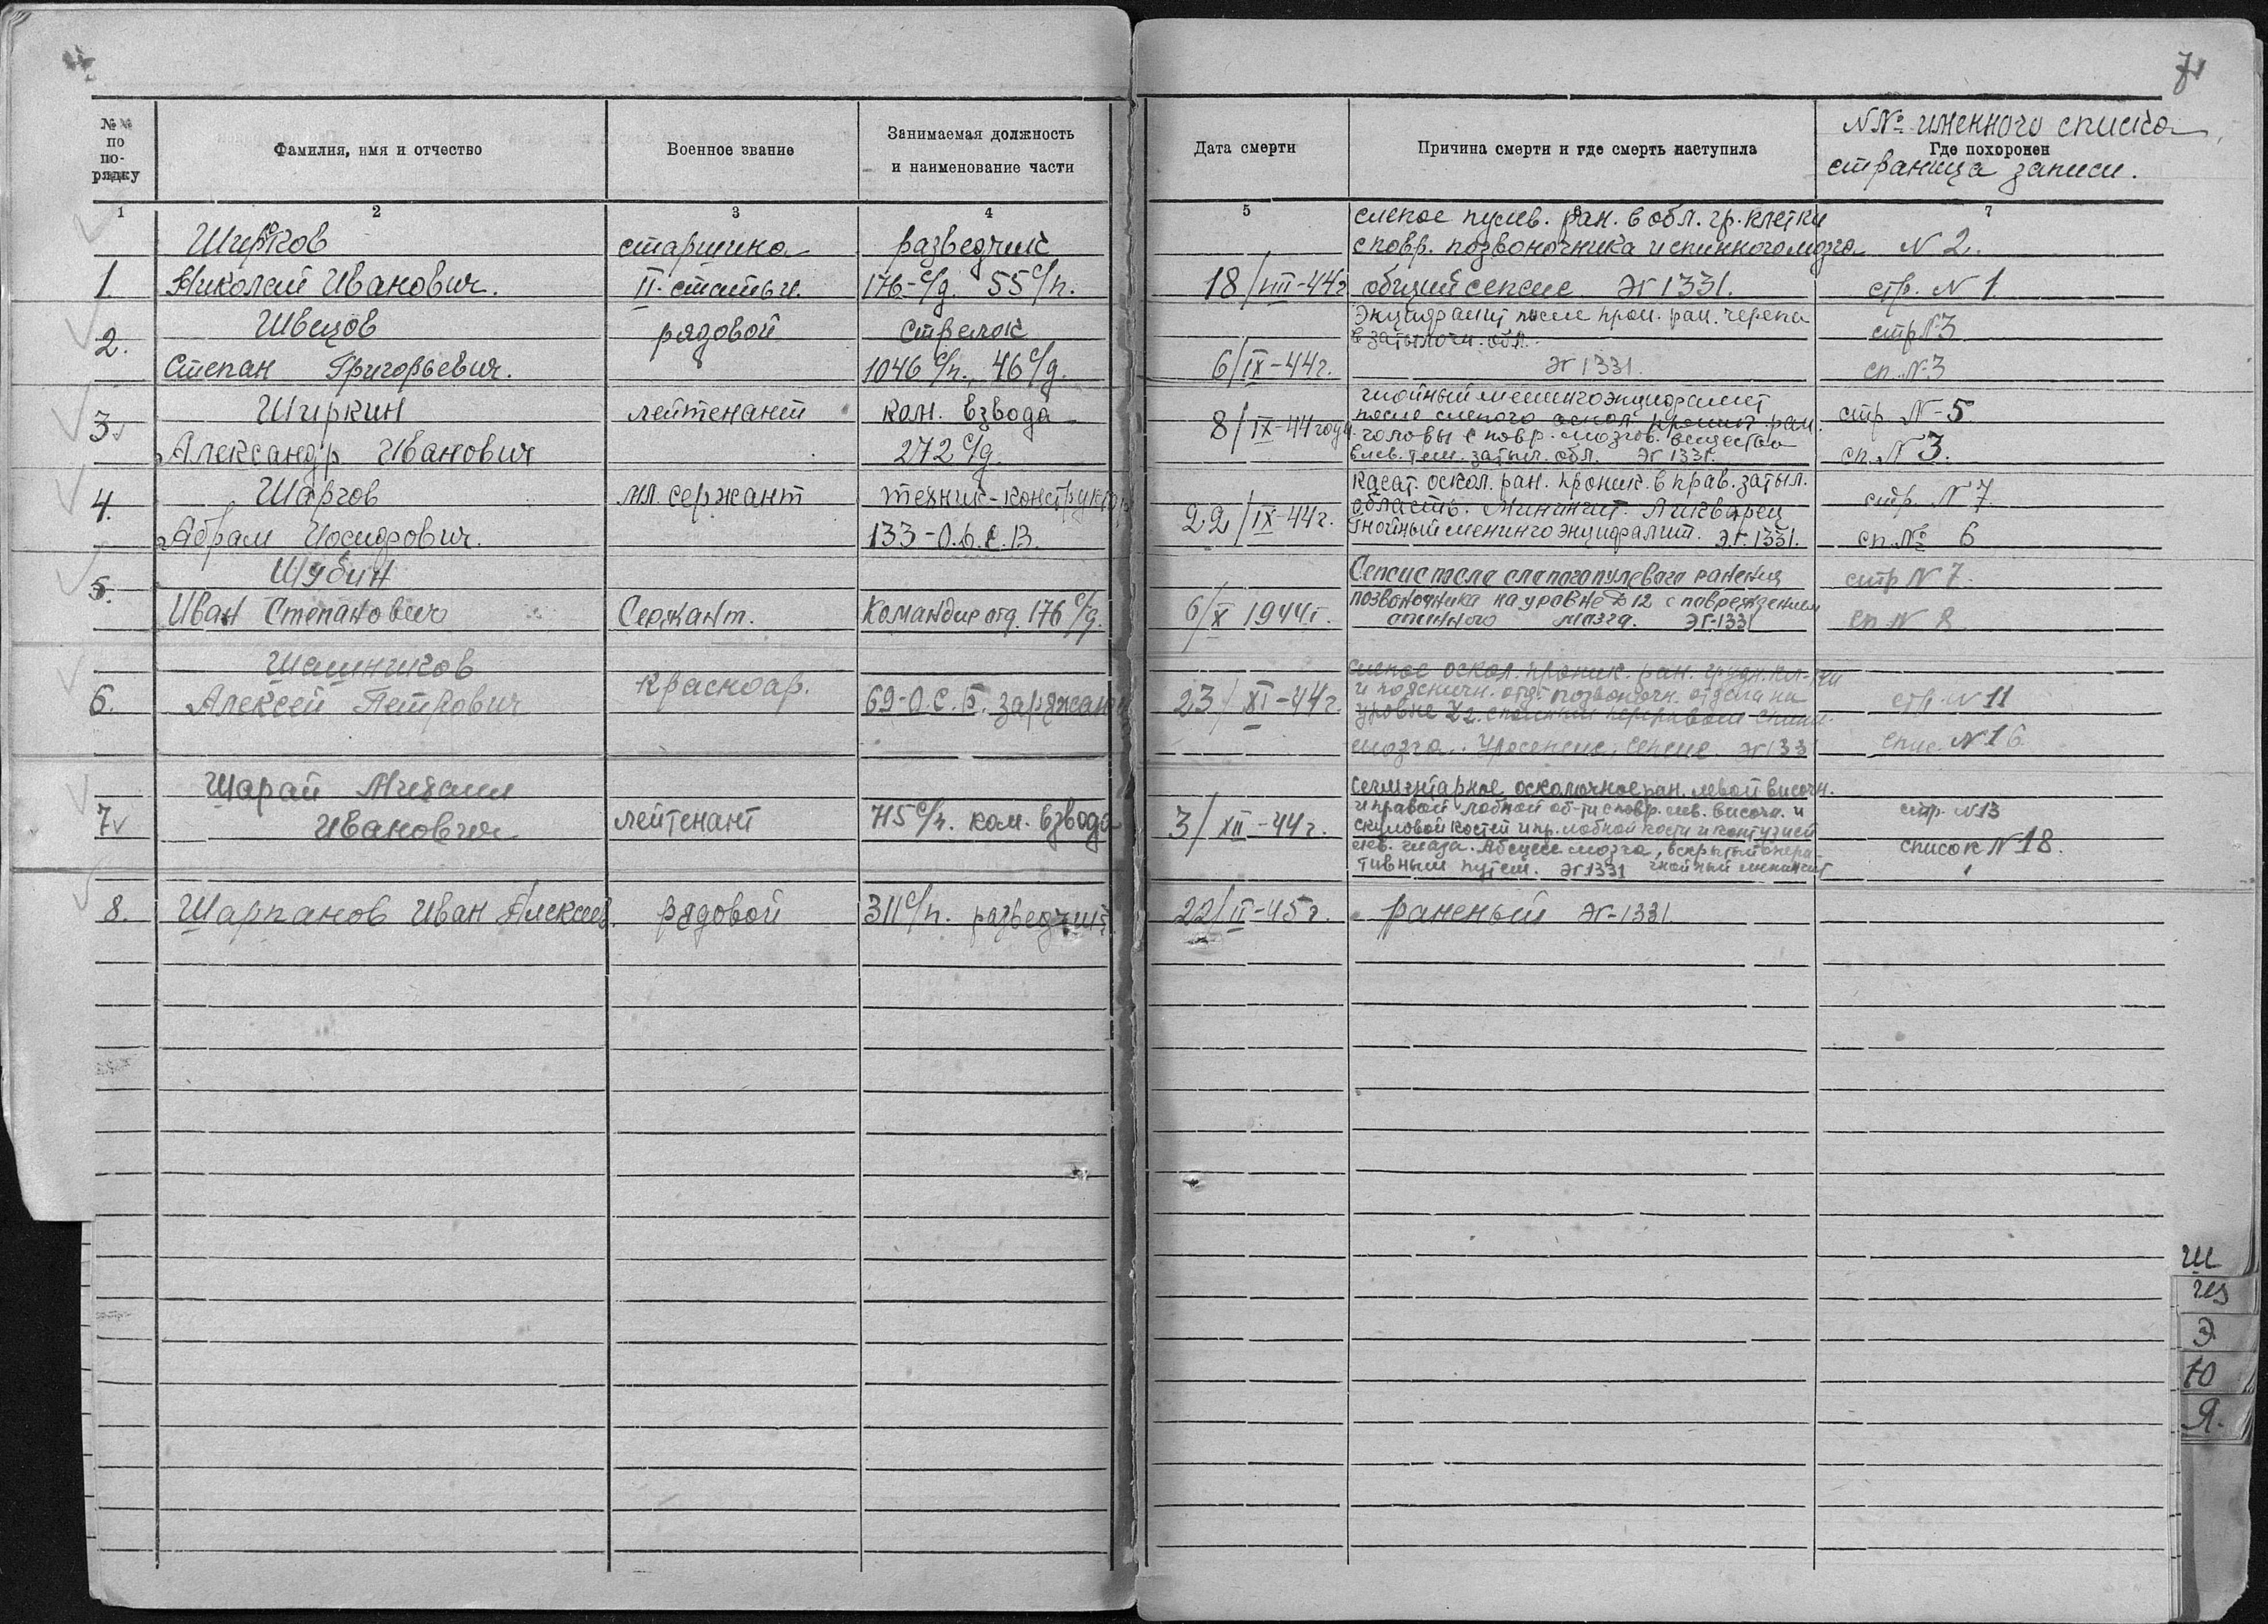 71
№№ по по-рядку
Фамилия, имя и отчество
Военное звание
Занимаемая должность
и наименование части
Дата смерти
Причина смерти и где смерть наступила
№№ именного списка
Где похоронен
страница записи.
1 2 3 4 5 6 7
1.
Ширков
Николай Иванович.
старшина
II-статьи.
разведчик
176-с/д. 55 с/п.
18/VIII-44г
слепое пулев. ран. в обл. гр. клетки
с повр. позвоночника и спинного мозга
общий сепсис ЭГ 1331.
N 2.
стр. N 1.
2.
Швецов
Степан Григорьевич.
рядовой
стрелок
1046 с/п., 46 с/д.
6/IX-44г.
Энцифалит после прон. ран. черепа
в затылочн. обл.
ЭГ 1331.
стр N3
сп. N.3
3.
Ширкин
Александр Иванович
лейтенант
ком. взвода
272 с/д.
8/IX-44 года.
гнойный менингоэнцифалит
после слепого оскол. проник. ран.
головы с повр. мозгов. вещества
в лев. тем. затыл. обл. ЭГ 1331.
стр N-5
сп. N 3.
4.
Шаргов
Абрам Иосифович.
мл. сержант
техник-конструктор
133-О.б.С.В.
22/IX-44г.
Касат. оскол. ран. проник. в прав. затыл.
область. Минингит. Ликворея
Гнойный менингоэнцифалит. ЭГ. 1331.
стр. N 7.
сп. № 6
5.
Шубин
Иван Степанович
Сержант.
Командир отд. 176 с/д.
6/X 1944г.
Сепсис посла слапого пулевого ранения
позвоночника на уравне D 12 с павреждением
спинного мозга. ЭГ-1331
стр N 7.
сп N 8
6.
Шашников
Алексей Петрович
красноар.
69-О.С.Б. заряжающ
23/XI-44г.
слепое оскол. проник. ран. грудн. кл-тки
и пояснич. отд. позвоночн. отдела на
уровне
мозга. Уросепсис, сепсис ЭГ 1331
стр. N 11
спис. N 16.
7
Шарай Михаил
Иванович
лейтенант
715 с/п. ком. взвода
3/XII-44г.
Сегментарное осколочное ран. левой височн.
и правой лобной об-ти с повр. лев. височн. и
скуловой костей и пр. лобной кости и контузией
лев. глаза. Абсцесс мозга, вскрытый опера-
тивным путем. ЭГ 1331 гнойный менингит
стр. N 13
список N 18.
8.
Шарпанов Иван Алексеев.
рядовой
311 с/п. разведчик
22/II-45г.
раненый ЭГ-1331.
Ш
Щ
Э
Ю
Я.